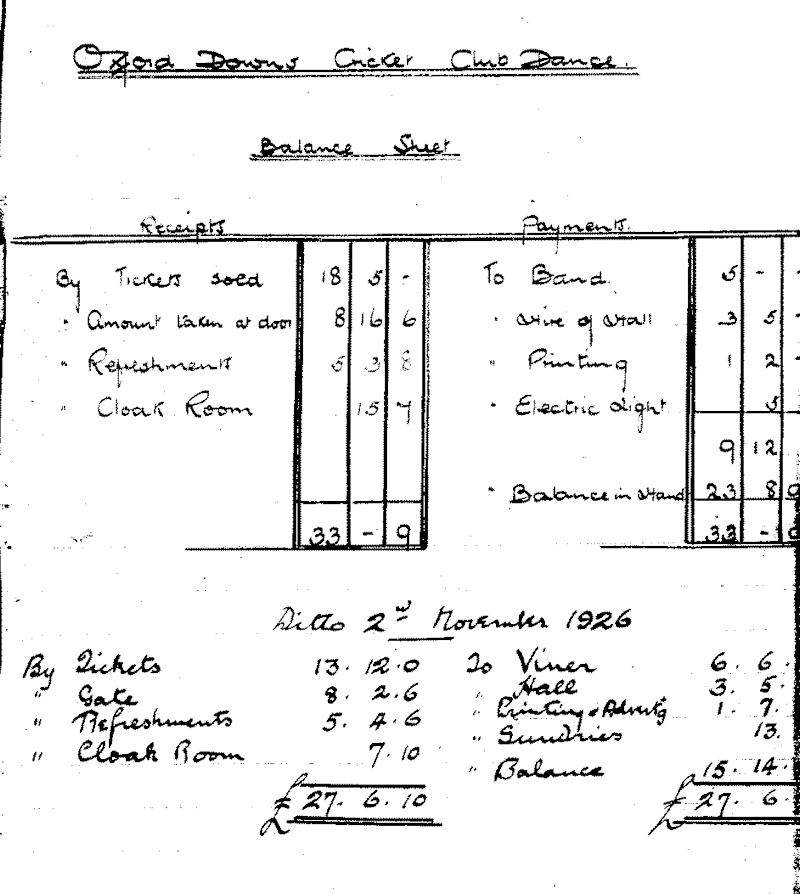 Oxford Downs Cricket Club Dance.
Balance Sheet
Receipts Payments.
By Tickets sold 18 5 - To Band. 5 - -
" Amount taken at door 8 16 6 " Hire of Hall 3 5 -
" Refreshments 5 3 8 " Printing 1 2 -
" Cloak Room 15 7 " Electric Light 5
9 12
" Balance in Hand 23 8 9
33 - 9 33 -
Ditto 2nd November 1926
By Tickets 13. 12. 0 To Viner 6. 6.
" Gate 8. 2. 6 " Hall 3. 5.
" Refreshments 5. 4. 6 " Printing & Advertg 1. 7.
" Cloak Room 7. 10 " Sundries 13.
" Balance 15. 14.
£ 27. 6. 10 £ 27. 6.